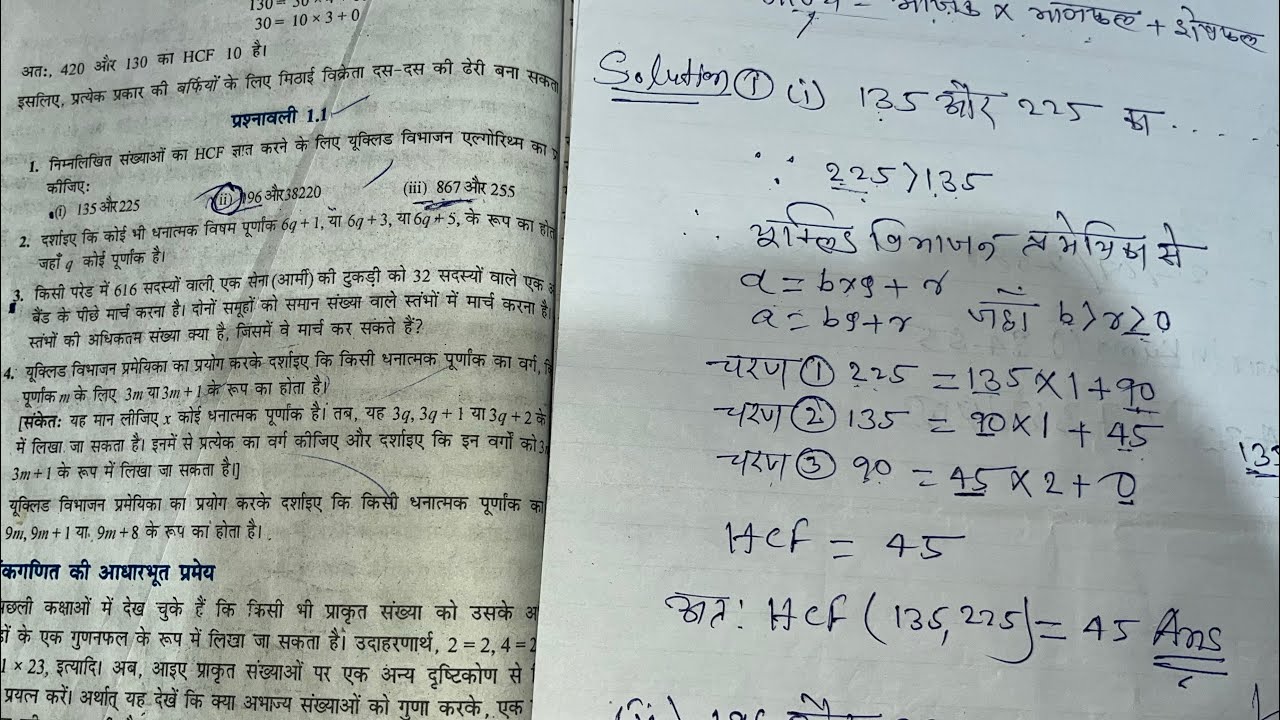 30 = 10 × 3 + 0
अतः, 420 और 130 का HCF 10 है।
इसलिए, प्रत्येक प्रकार की बर्फियों के लिए मिठाई विक्रेता दस-दस की ढेरी बना सकता
प्रश्नावली 1.1
1. निम्नलिखित संख्याओं का HCF ज्ञात करने के लिए यूक्लिड विभाजन एल्गोरिथ्म का
कीजिए:
(i) 135 और 225 (ii) 196 और 38220 (iii) 867 और 255
2. दर्शाइए कि कोई भी धनात्मक विषम पूर्णांक 6q + 1, या 6q + 3, या 6q + 5, के रूप का होता
जहाँ q कोई पूर्णांक है।
3. किसी परेड में 616 सदस्यों वाली एक सेना (आर्मी) की टुकड़ी को 32 सदस्यों वाले एक
बैंड के पीछे मार्च करना है। दोनों समूहों को समान संख्या वाले स्तंभों में मार्च करना है।
स्तंभों की अधिकतम संख्या क्या है, जिसमें वे मार्च कर सकते हैं?
4. यूक्लिड विभाजन प्रमेयिका का प्रयोग करके दर्शाइए कि किसी धनात्मक पूर्णांक का वर्ग,
पूर्णांक m के लिए 3m या 3m + 1 के रूप का होता है।
[संकेतः यह मान लीजिए x कोई धनात्मक पूर्णांक है। तब, यह 3q, 3q + 1 या 3q + 2 के
में लिखा जा सकता है। इनमें से प्रत्येक का वर्ग कीजिए और दर्शाइए कि इन वर्गों को
3m + 1 के रूप में लिखा जा सकता है।]
यूक्लिड विभाजन प्रमेयिका का प्रयोग करके दर्शाइए कि किसी धनात्मक पूर्णांक का
9m, 9m + 1 या 9m + 8 के रूप का होता है।
कगणित की आधारभूत प्रमेय
पछली कक्षाओं में देख चुके हैं कि किसी भी प्राकृत संख्या को उसके
के एक गुणनफल के रूप में लिखा जा सकता है। उदाहरणार्थ, 2 = 2, 4 = 2
1 × 23, इत्यादि। अब, आइए प्राकृत संख्याओं पर एक अन्य दृष्टिकोण से
प्रयत्न करें। अर्थात् यह देखें कि क्या अभाज्य संख्याओं को गुणा करके, एक
भाजक × भागफल + शेषफल
Solution ① (i) 135 और 225 का ....
∵ 225 > 135
∴ यूक्लिड विभाजन प्रमेयिका से
a = b×q + r
a = bq + r जहाँ b > r ≥ 0
चरण ① 225 = 135 × 1 + 90
चरण ② 135 = 90 × 1 + 45
चरण ③ 90 = 45 × 2 + 0
HCF = 45
अतः HCF (135, 225) = 45 Ans